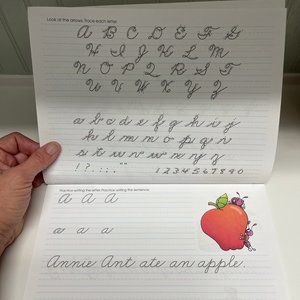 Look at the arrows. Trace each letter.
A B C D E F G
H I J K L M
N O P Q R S T
U V W X Y Z
a b c d e f g h i j
k l m n o p q r
s t u v w x y z
! ? . , : ; " "
1 2 3 4 5 6 7 8 9 0
Practice writing the letter. Practice writing the sentence.
A A A
a a a
Annie Ant ate an apple.